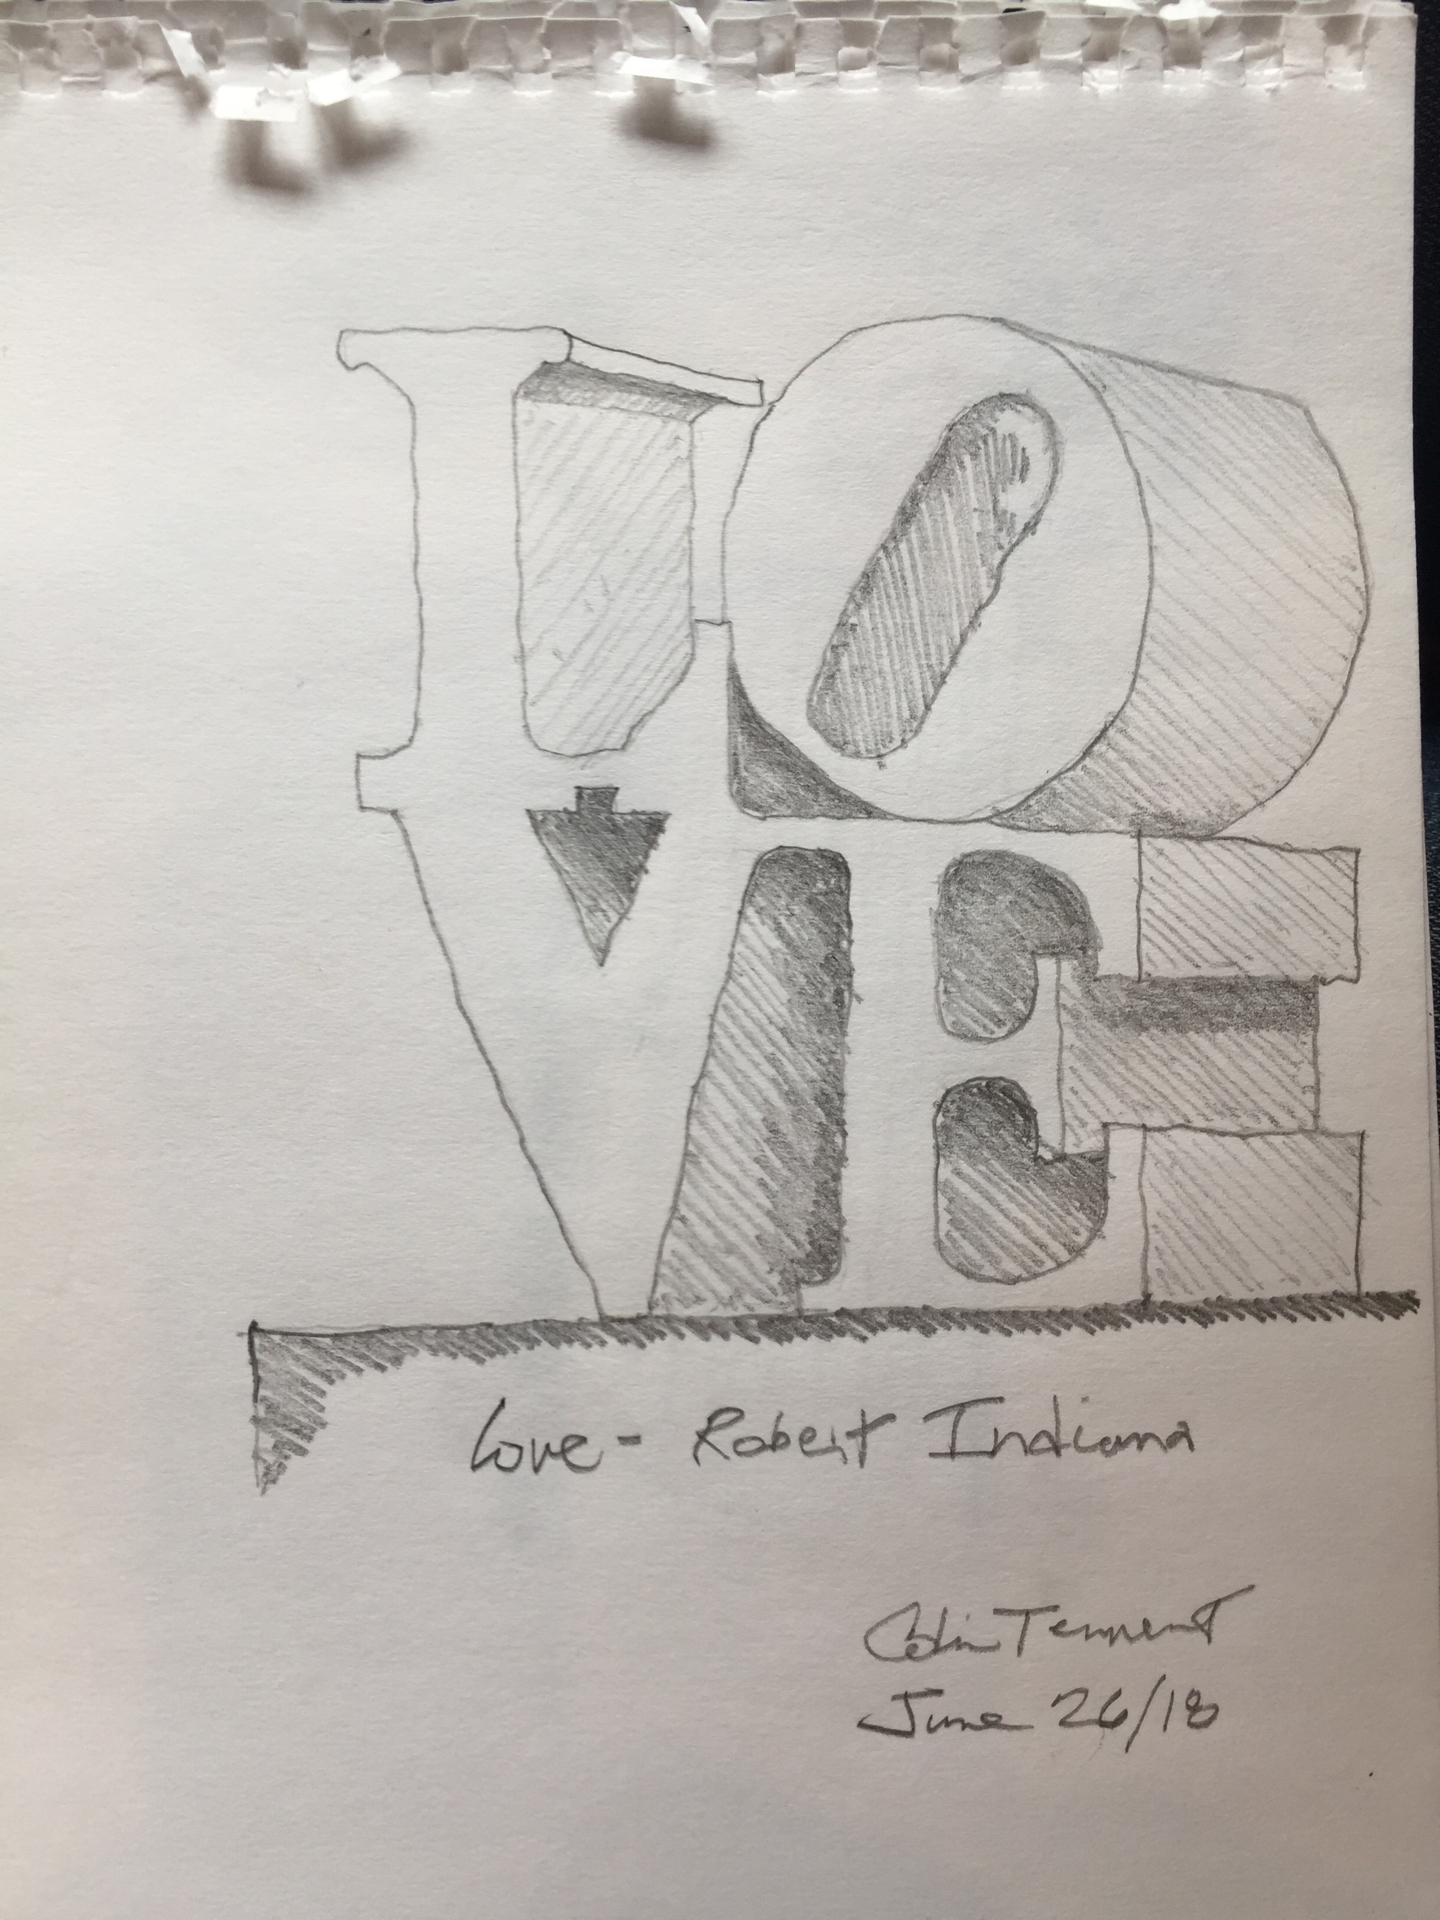 LO
VE
Love - Robert Indiana
Colin Tennent
June 26/18